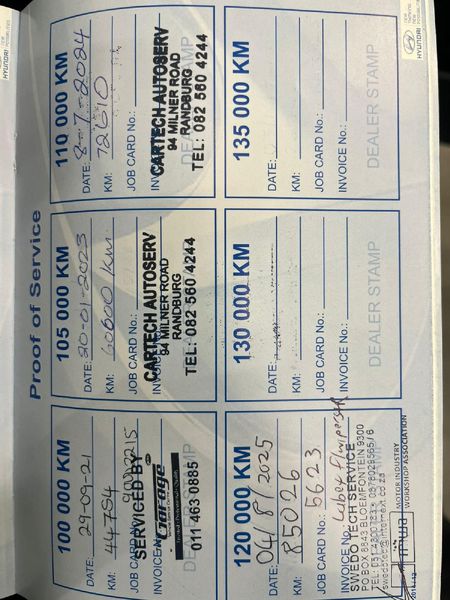 Proof of Service
100 000 KM
DATE: 29-09-21
KM: 44784
JOB CARD No.:
SERVICED BY
INVOICE
Garage
011 463 0885
105 000 KM
DATE: 20-01-2023
KM: 60600 km
JOB CARD No.:
CARTECH AUTOSERV
94 MILNER ROAD
RANDBURG
TEL: 082 560 4244
110 000 KM
DATE: 8-7-2024
KM: 72610
JOB CARD No.:
CARTECH AUTOSERV
94 MILNER ROAD
RANDBURG
TEL: 082 560 4244
120 000 KM
DATE: 04/8/2025
KM: 85026
JOB CARD No.: 5623
INVOICE No.:
SWEDO TECH SERVICE
PO BOX 6843 BLOEMFONTEIN 9300
MOTOR INDUSTRY
WORKSHOP ASSOCIATION
130 000 KM
DATE:
KM:
JOB CARD No.:
INVOICE No.:
DEALER STAMP
135 000 KM
DATE:
KM:
JOB CARD No.:
INVOICE No.:
DEALER STAMP
HYUNDAI
HYUNDAI